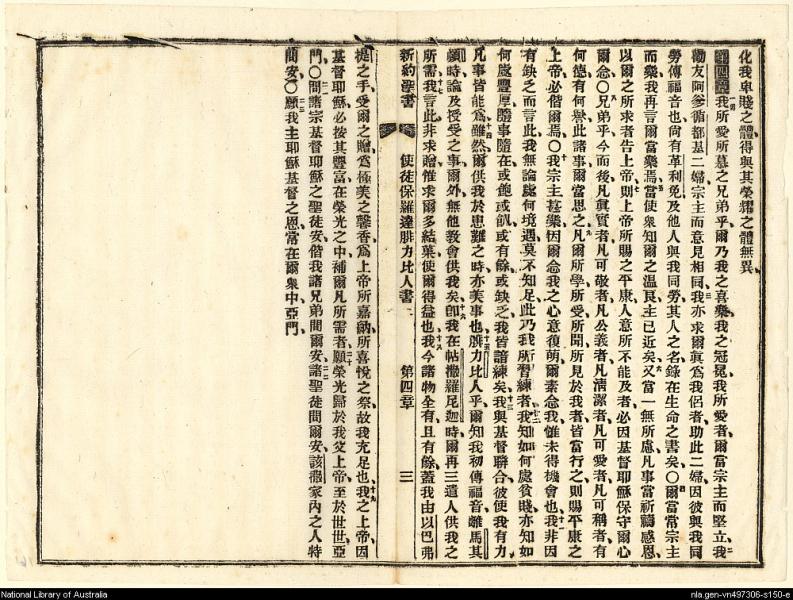 化我卑賤之體、得與其榮耀之體無異、
第四章 一我所愛所慕之兄弟乎、爾乃我之喜樂、我之冠冕、我所愛者、爾當宗主而堅立、二我
勸友阿爹循都基二婦、宗主而意見相同、三我亦求爾眞爲我侶者、助此二婦、因彼與我同
勞傳福音也、尚有革利免、及他人與我同勞、其人之名、錄在生命之書矣、〇四爾當常宗主
而樂、我再言爾當樂焉、五當使衆知爾之溫良、主已近矣、六又當一無所慮、凡事當祈禱感恩、
以爾之所求者告上帝、七則上帝所賜之平康、人意所不能及者、必因基督耶穌保守爾心
爾念、〇八兄弟乎、今而後凡眞實者、凡可敬者、凡公義者、凡清潔者、凡可愛者、凡可稱者、有
何德、有何譽、此諸事爾當思之、九凡爾所學所受所聞所見於我者、皆當行之、則賜平康之
上帝、必偕爾焉、〇十我宗主甚樂、因爾念我之心意復萌、爾素念我、惟未得機會也、十一我非因
有缺乏而言此、我無論處何境遇、莫不知足、此乃我所習練者、十二我知如何處貧賤、亦知如
何處豐厚、隨事隨在、或飽或飢、或有餘、或缺乏、我皆諳練矣、十三我與基督聯合、彼使我有力、
凡事皆能爲、十四雖然、爾供我於患難之時、亦美事也、十五腓力比人乎、爾知我初傳福音、離馬其
頓時、論及授受之事、爾外無他敎會供我矣、十六卽我在帖撒羅尼迦時、爾再三遣人供我之
所需、十七我言此非求贈、惟求爾多結菓、使爾得益也、十八我今諸物全有、且有餘、蓋我由以巴弗
新約聖書 使徒保羅達腓力比人書 第四章 三
提之手、受爾之贈、爲極美之馨香、爲上帝所嘉納所喜悅之祭、故我充足也、十九我之上帝、因
基督耶穌、必按其豐富、在榮光之中、補爾凡所需者、二十願榮光歸於我父上帝、至於世世、亞
門、〇二一問諸宗基督耶穌之聖徒安、偕我諸兄弟問爾安、二二諸聖徒問爾安、該撒家內之人特
問安、〇二三願我主耶穌基督之恩、常在爾衆中、亞門、
National Library of Australia
nla.gen-vn497306-s150-e